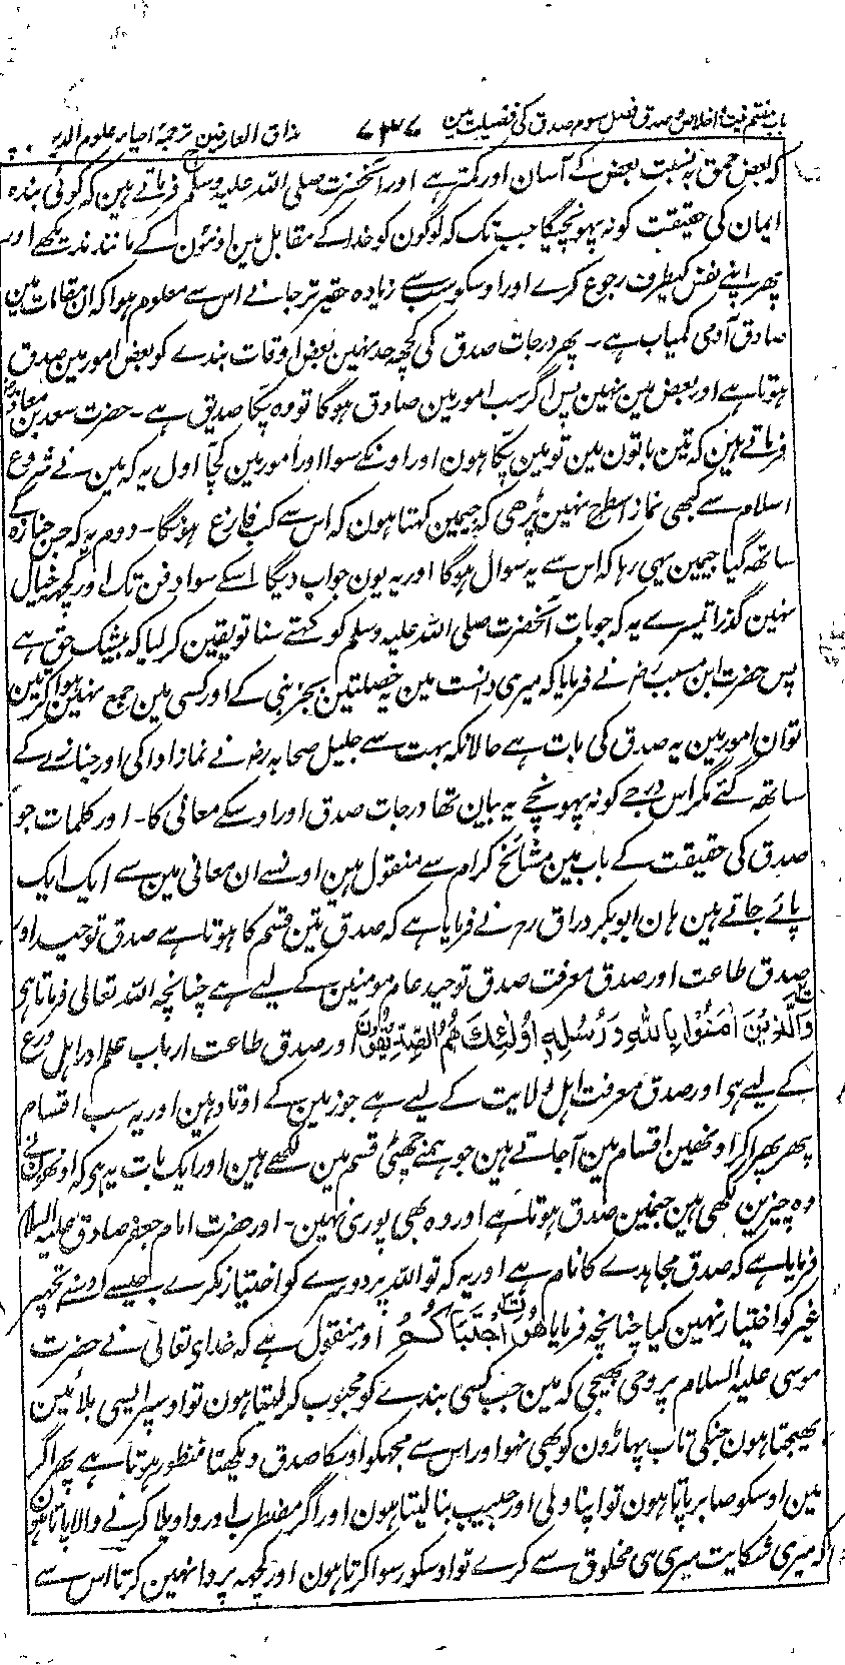 باب ہفتم نیت و اخلاص و صدق فصل سوم صدق کی فضیلت مین ۷۳۷ مذاق العارفین ترجمۂ احیاء علوم الدین
کہ بعض حمق بہ نسبت بعض کے آسان اور کمتر ہے اور آنحضرت صلی اللہ علیہ وسلم فرماتے ہین کہ کوئی بندہ
ایمان کی حقیقت کو نہ پہونچیگا جب تک کہ لوگون کو خدا کے مقابل مین اونٹون کے مانند نہ دیکھے اور
پھر اپنے نفس کیطرف رجوع کرے اور اوسکو سب سے زیادہ حقیر تر جانے اس سے معلوم ہوا کہ ان مقامات مین
صادق آدمی کمیاب ہے ۔ پھر درجات صدق کی کچھ حد نہین بعض اوقات بندے کو بعض امور مین صدق
ہوتا ہے اور بعض مین نہین پس اگر سب امور مین صادق ہوگا تو وہ پکا صدیق ہے ۔ حضرت سعد بن معاذ رض
فرماتے ہین کہ تین باتون مین تو مین پکا ہون اور اونکے سوا اور امور مین کچا اول یہ کہ مین نے شروع
اسلام سے کبھی نماز اسطرح نہین پڑھی کہ جیمین کہتا ہون کہ اس سے کب فارغ ہونگا ۔ دوم یہ کہ جس جنازہ کے
ساتھ گیا جیمین یہی رہا کہ اس سے یہ سوال ہوگا اور یہ یون جواب دیگا اسکے سوا دفن تک اور کچھ خیال
نہین گذرا تیسرے یہ کہ جو بات آنحضرت صلی اللہ علیہ وسلم کو کہتے سنا تو یقین کر لیا کہ بیشک حق ہے
پس حضرت ابن مسیب رض نے فرمایا کہ میری دانست مین یہ خصلتین بجز نبی کے اور کسی مین جمع نہین ہوا کرتین
تو ان امور مین یہ صدق کی بات ہے حالانکہ بہت سے جلیل صحابہ رض نے نماز ادا کی اور جنازے کے
ساتھ گئے مگر اس درجے کو نہ پہونچے یہ بیان تھا درجات صدق اور اوسکے معانی کا ۔ اور کلمات جو
صدق کی حقیقت کے باب مین مشائخ کرام سے منقول ہین اونسے ان معانی مین سے ایک ایک
پائے جاتے ہین ہان ابو بکر دراق رح نے فرمایا ہے کہ صدق تین قسم کا ہوتا ہے صدق توحید اور
صدق طاعت اور صدق معرفت صدق توحید عام مومنین کے لیے ہے چنانچہ اللہ تعالی فرماتا ہے
وَالَّذِیْنَ اٰمَنُوْا بِاللّٰهِ وَرُسُلِهٖ اُولٰئِكَ هُمُ الصِّدِّیْقُوْنَ اور صدق طاعت ارباب علم اور اہل ورع
کے لیے ہی اور صدق معرفت اہل ولایت کے لیے ہے جو زمین کے اوتاد ہین اور یہ سب اقسام
پھر پھرا کر اونھین اقسام مین آجاتے ہین جو ہمنے چھٹی قسم مین لکھے ہین اور ایک بات یہ ہی کہ اونھون نے
وہ چیزین لکھی ہین جنمین صدق ہوتا ہے اور وہ بھی پوری نہین ۔ اور حضرت امام جعفر صادق علیہ السلام
فرمایا ہے کہ صدق مجاہدے کا نام ہے اور یہ کہ تو اللہ پر دوسرے کو اختیار نکرے جیسے اوسنے تجھپر
غیر کو اختیار نہین کیا چنانچہ فرمایا هُوَ اجْتَبَاكُمْ اور منقول ہے کہ خدای تعالی نے حضرت
موسی علیہ السلام پر وحی بھیجی کہ مین جب کسی بندے کو محبوب کر لیتا ہون تو اوسپر ایسی بلائین
بھیجتا ہون جنکی تاب پہاڑون کو بھی نہو اور اس سے مجھکو اوسکا صدق دیکھنا منظور ہوتا ہے پھر اگر
مین اوسکو صابر پاتا ہون تو اپنا ولی اور حبیب بنا لیتا ہون اور اگر مضطرب اور واویلا کرنے والا پاتا ہون
کہ میری شکایت میری ہی مخلوق سے کرے تو اوسکو رسوا کرتا ہون اور کچھ پروا نہین کرتا اس سے